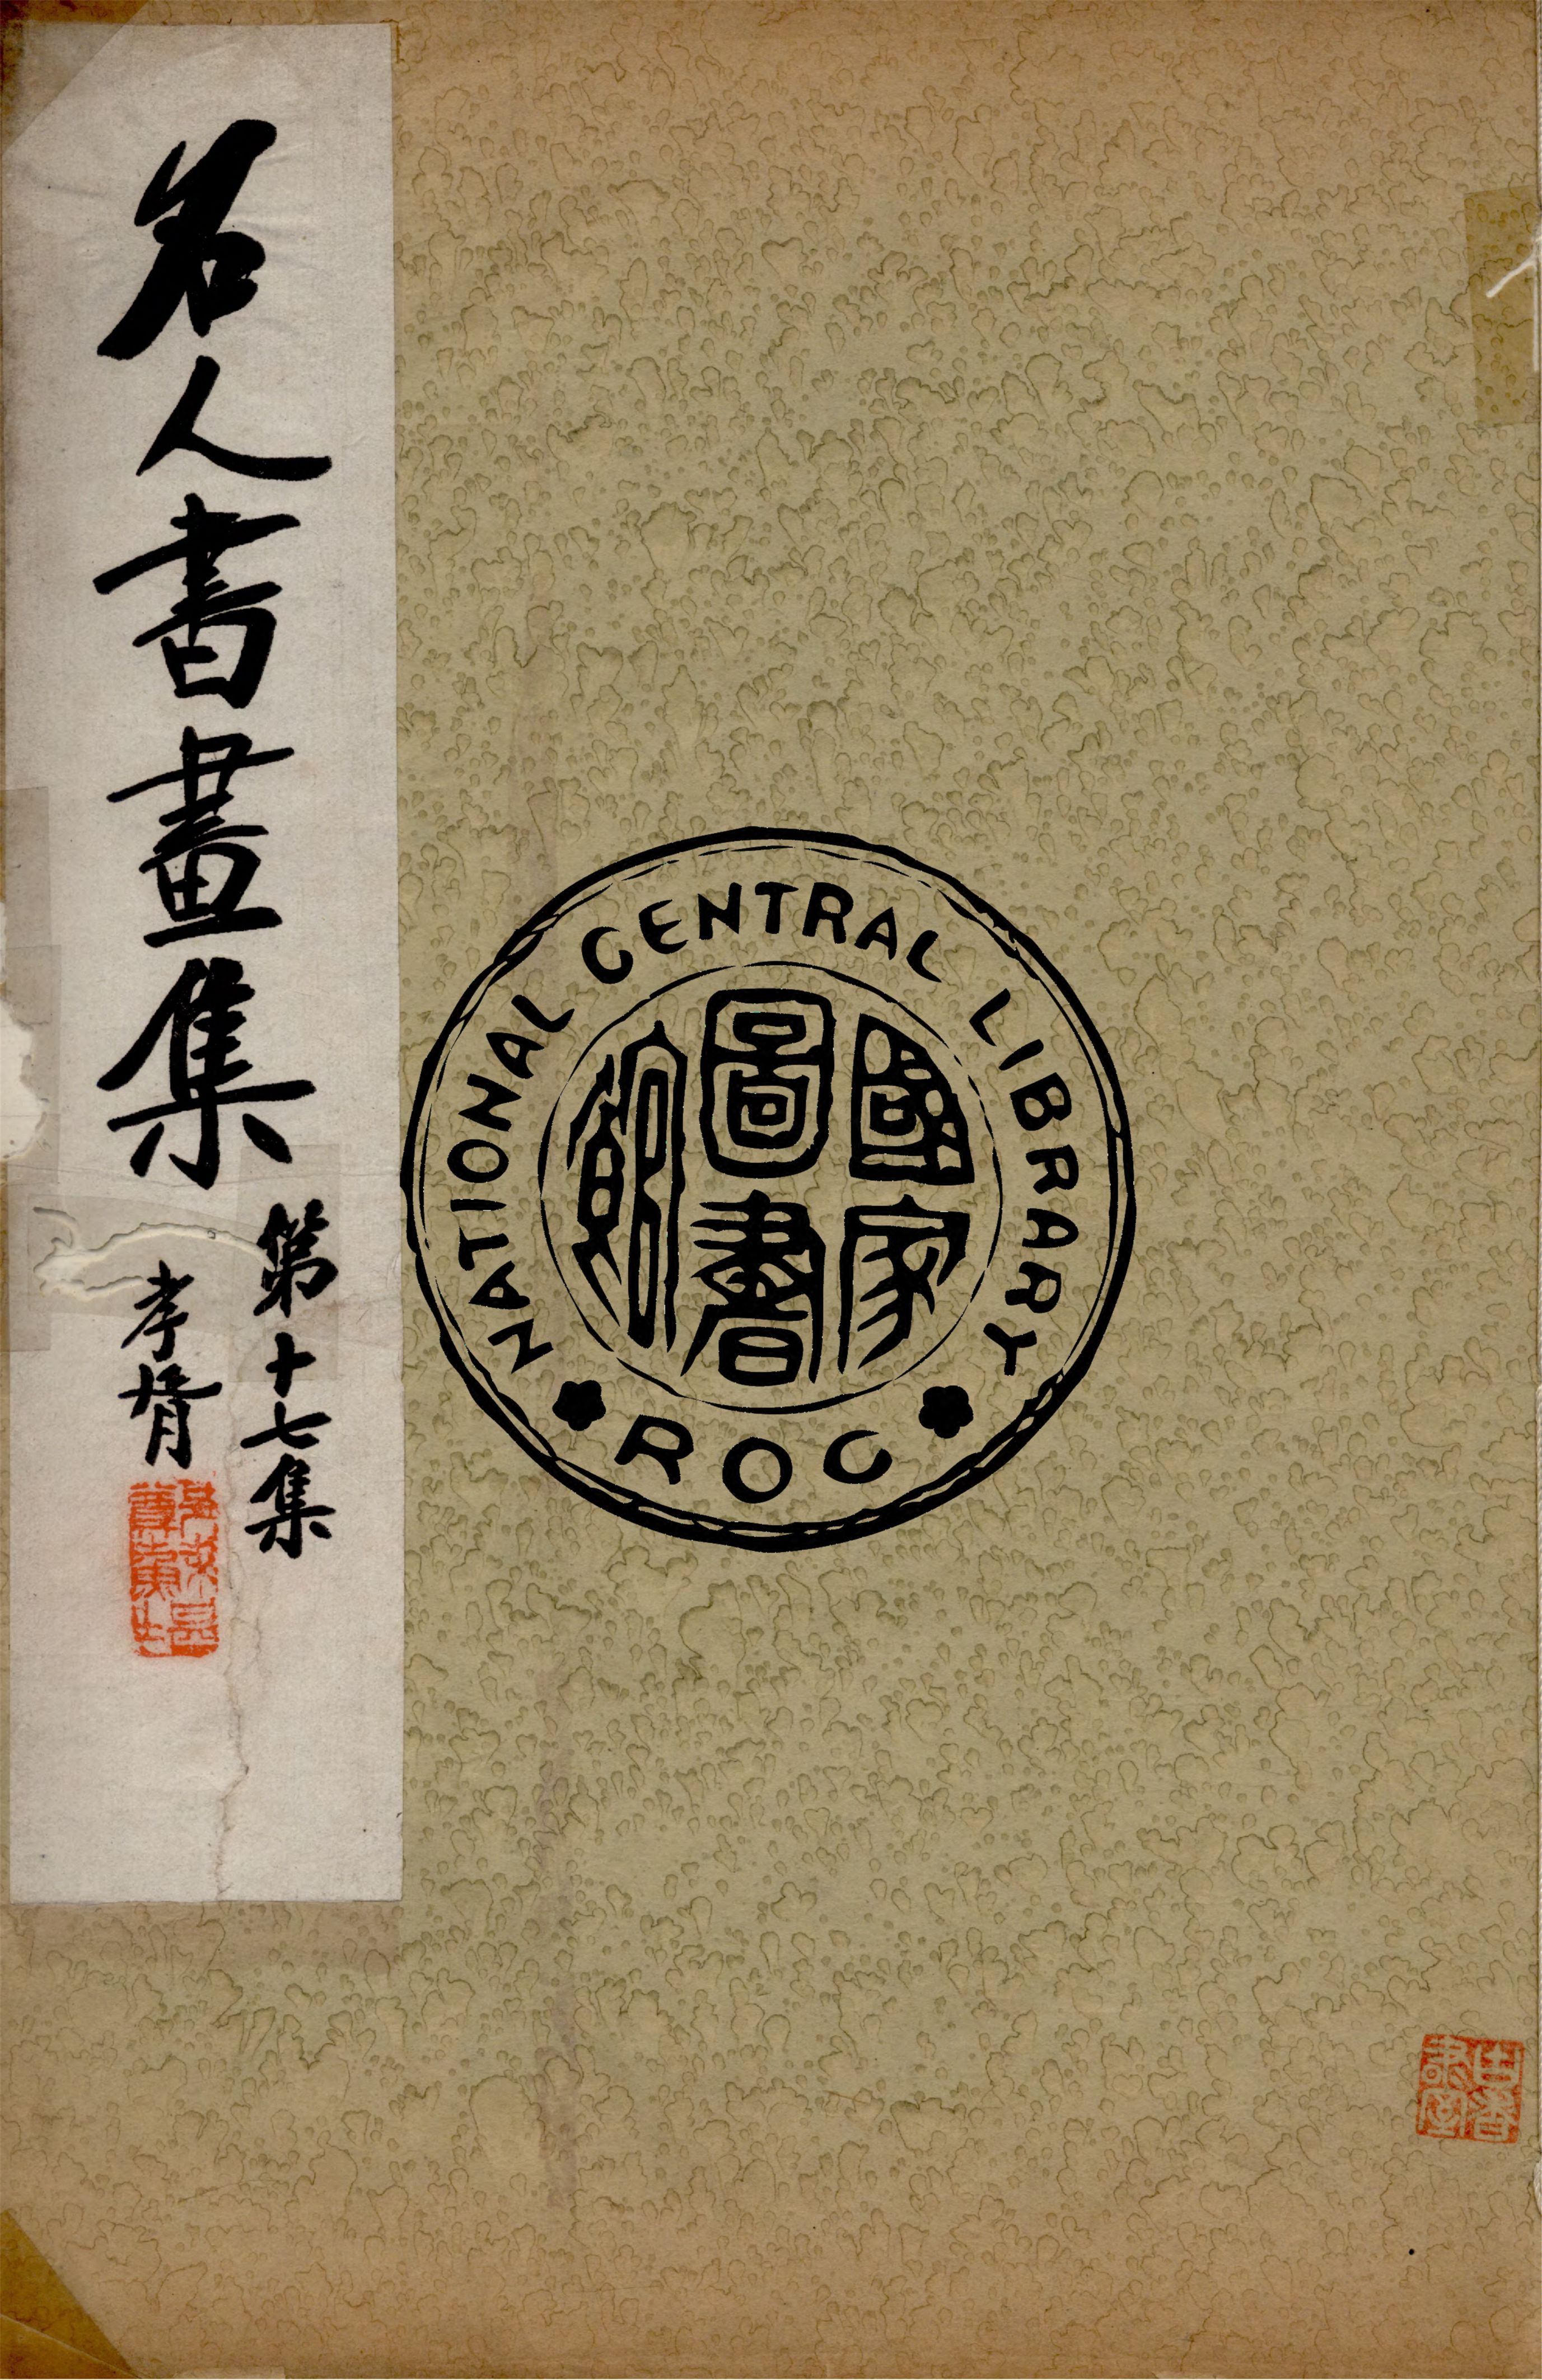 名人書畫集
第十七集
孝胥
NATIONAL CENTRAL LIBRARY
國家
圖書
館
ROC